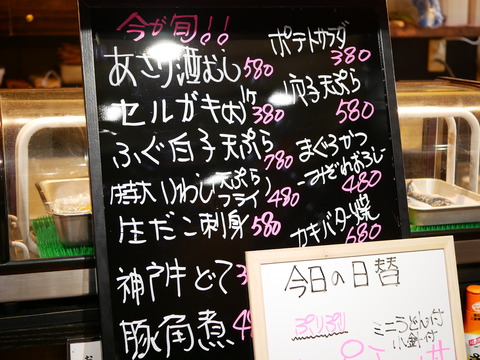 今が旬!!
あさり酒むし 580
セルガキ 1ケ 380
ふぐ白子天ぷら 780
特大いわし 天ぷら フライ 480
生だこ刺身 580
神戸牛どて 3
豚角煮 4
ポテトサラダ 380
穴子天ぷら 580
まぐろかつ
-みぞれおろし- 480
カキバター焼 680
今日の日替
ぷりぷり
ミニうどん付
小金付